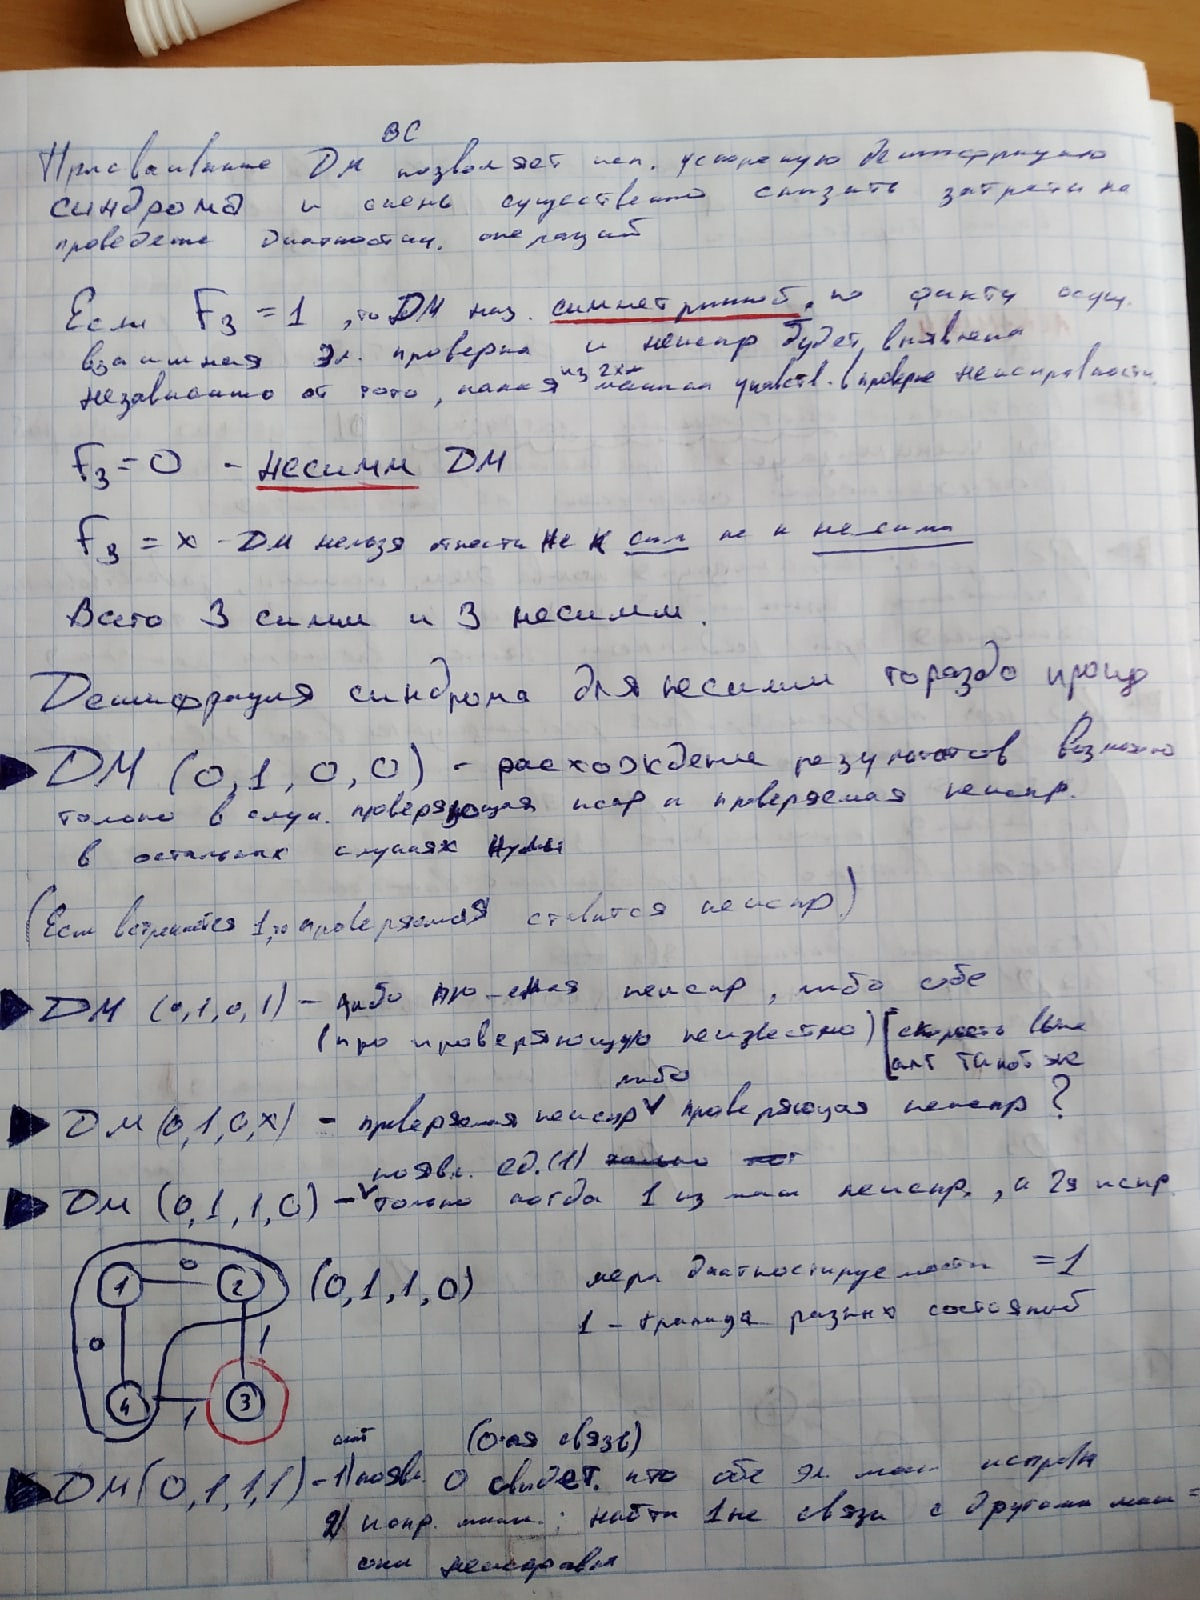 ВС
Присваивание ДМ позволяет исп. ускореную дешифрацию
синдрома и очень существенно снизить затраты на
проведение диагностич. операций
Если F3 = 1, то ДМ наз. симметричной, по факту осущ.
взаимная эл. проверка и неиспр будет выявлена
независимо от того, какая из 2х машин учавств. в проверке неисправности
F3 = 0 - несимм ДМ
F3 = x - ДМ нельзя отнести не к сим не к несимм
Всего 3 симм и 3 несимм.
Дешифрация синдрома для несимм гораздо проще
ДМ (0,1,0,0) - расхождение результатов возможно
только в случ. проверяющая испр и проверяемая неиспр.
в остальных случаях нули
(Если встречается 1, то проверяемая ставится неиспр)
ДМ (0,1,0,1) - либо пр-емая неиспр, либо обе
(про проверяющую неизвестно) [скорость выше
алг такой же
либо
ДМ (0,1,0,x) - проверяемая неиспр проверяющая неиспр ?
появл. ед. (1)
ДМ (0,1,1,0) - только когда 1 из маш неиспр., а 2я испр.
1 0 2 (0,1,1,0) мера диагностируемости = 1
0 1 1 - граница разных состояний
4 1 3
(0-ая связь)
ДМ (0,1,1,1) - 1) появл. 0 свидет. что обе эл маш исправн
2) испр. маш.: найти 1не связи с другими маш =
они неисправны